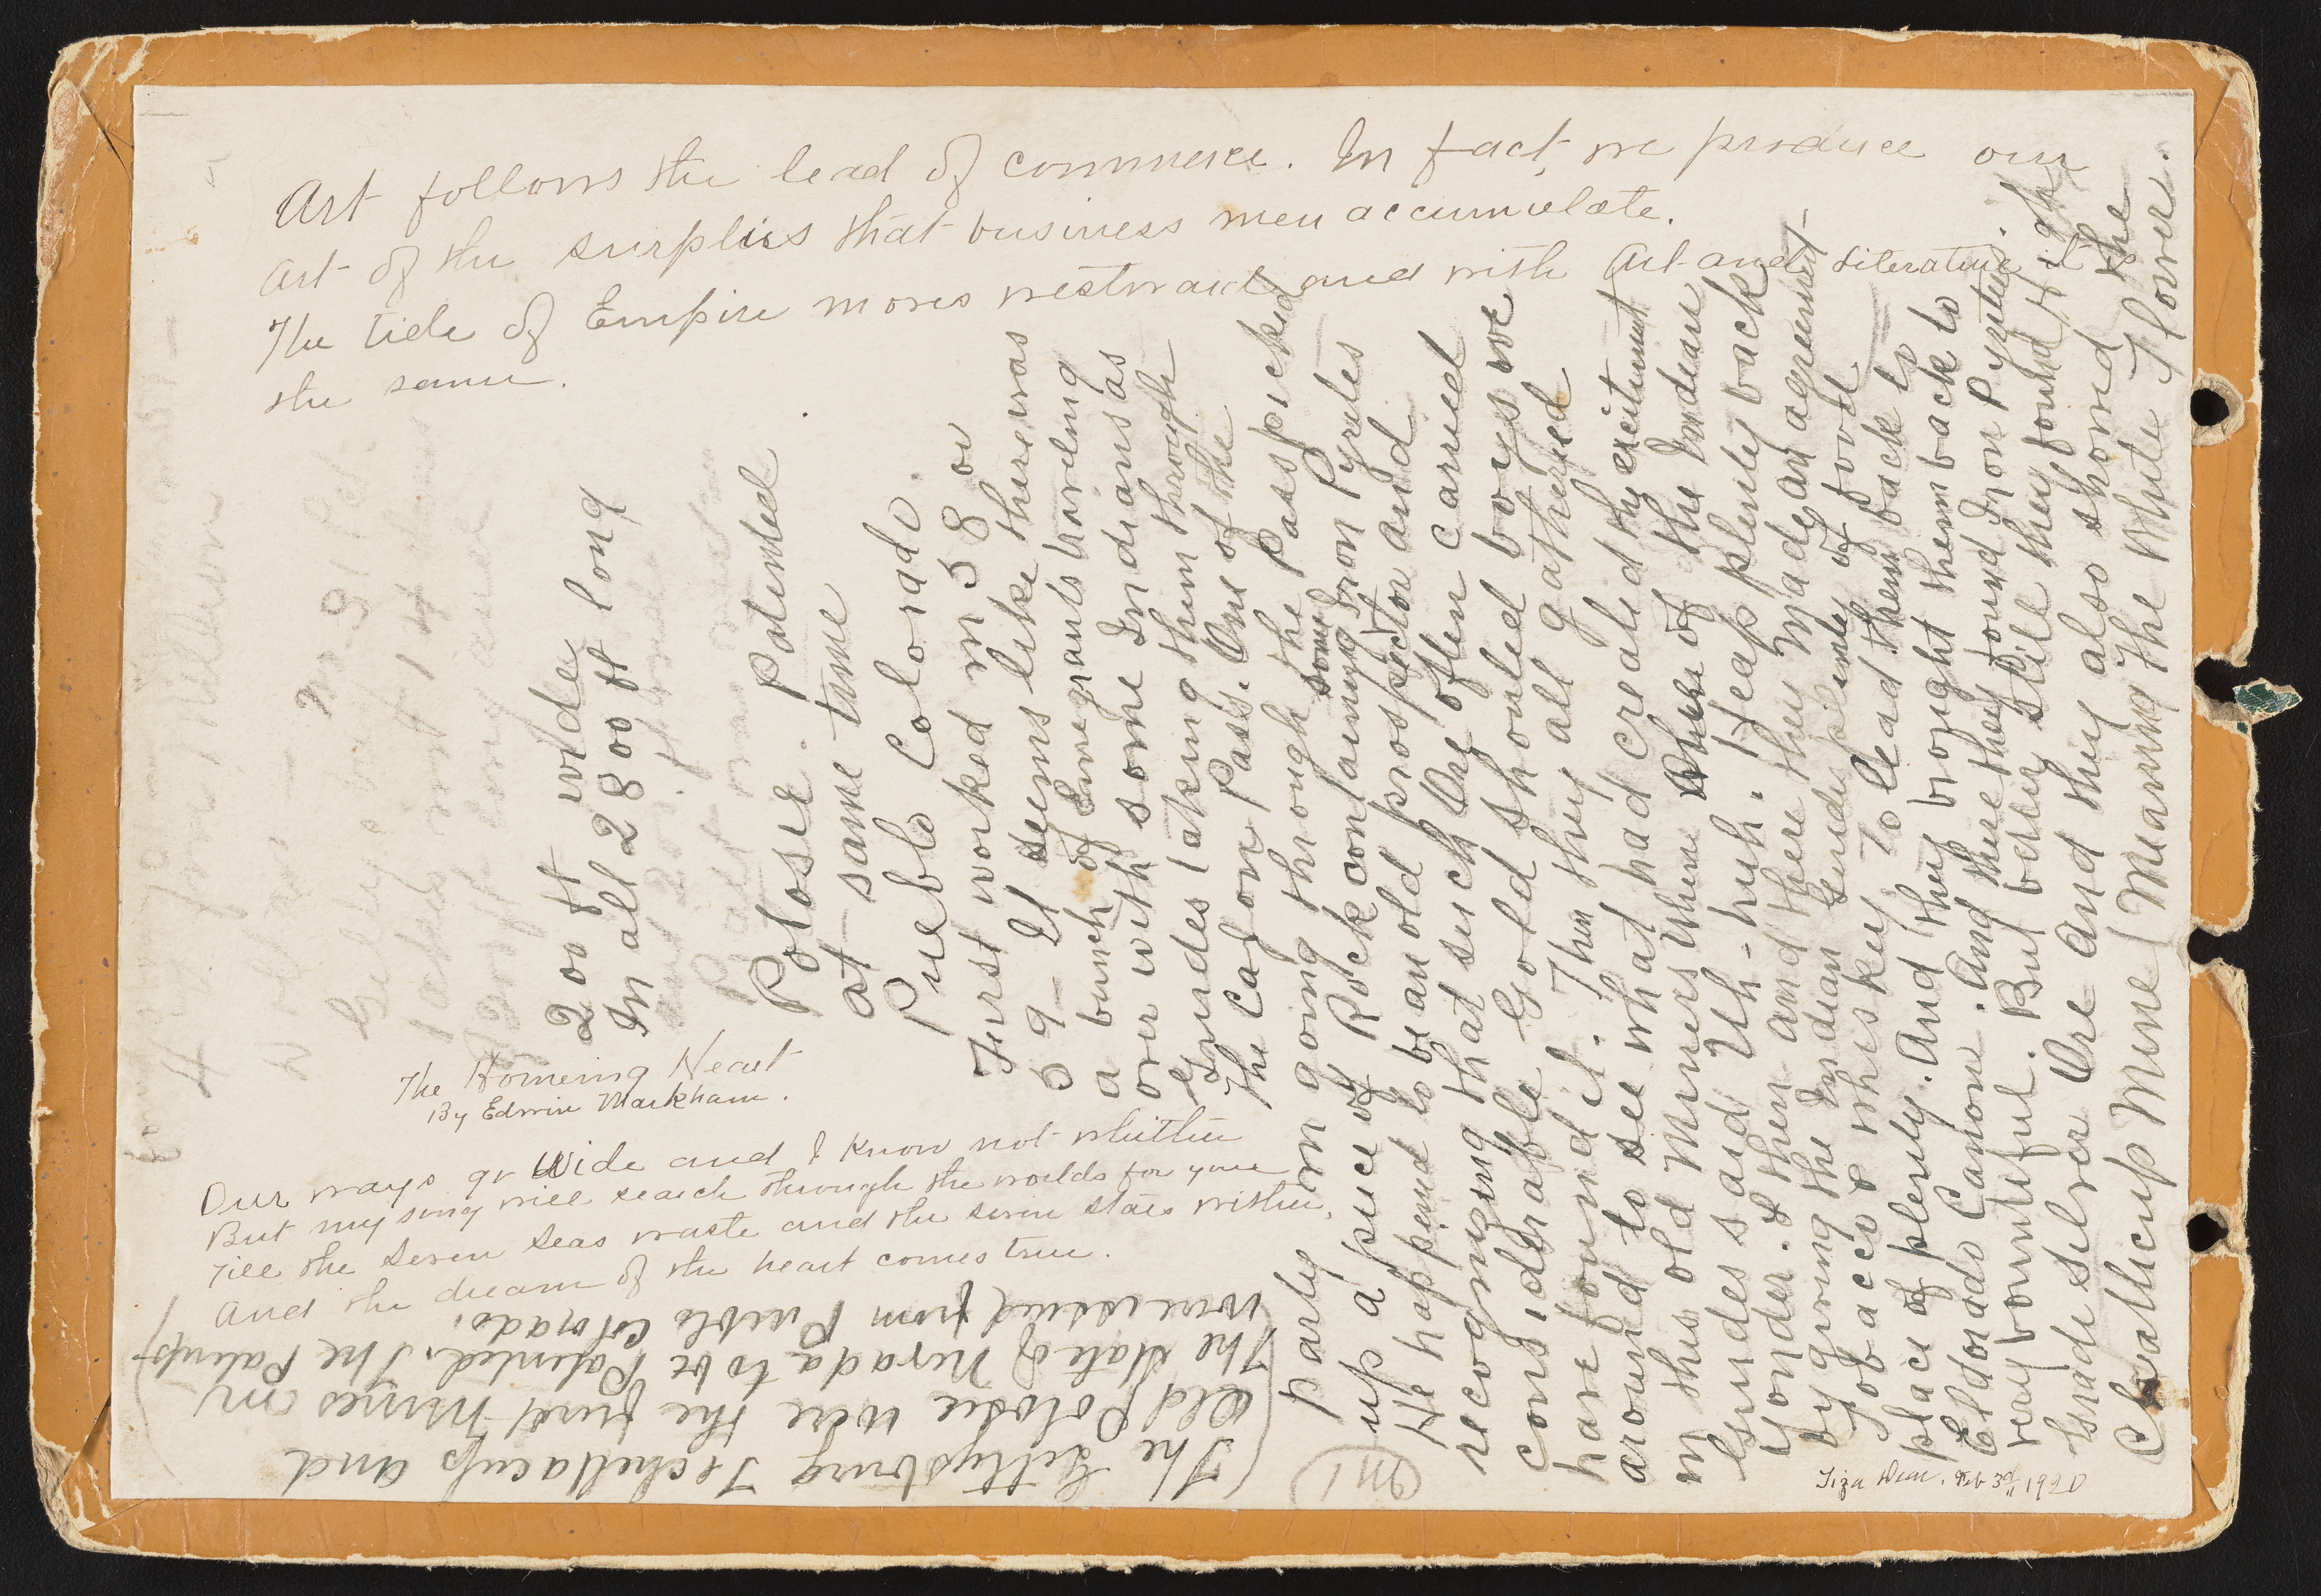 Art follows the lead of commerce. In fact, we produce our
art of the surplus that business men accumulate.
The tide of Empire moves westward and with Art and Literature it
the same.
200 ft wide
In all 2800 ft long
Potosie. Patented
at same time
Pueblo Colorado.
First worked in 58 or
59 - It seems like there was
a bunch of Emegrants traveling
over with some Indians as
Guides taking them through
the Cajone Pass. One of the
party in going through the Pass picked
up a piece of Rock containing some Iron Pyrites
He happened to be an old prospector and
recognizing that such Ore often carried
considerable Gold shouted boys we
have found it. Then they all gathered
around to see what had created the excitement
in this old Miners Where of the Indian
Guides said Uh-huh. Heap plenty back
yonder. & then and there they made an agreement
by giving the Indian Guides plenty of food
Tobacco & whiskey to lead them back to
place of plenty. And they brought them back to
Eldorado Canone. And there they found Iron Pyrites.
very bountiful. But better still they found High
Grade Silver Ore And they also showed the
Chatticup Mine (Meaning the White Flower.
The Homeing Heart
By Edwin Markham.
Our ways go Wide and I know not whither
But my song will search through the worlds for you
Till the Seven Seas waste and the seven stars wither,
And the dream of the heart comes true.
The Gettysburg Techattacup and
Old Potosie were the first Mines in
The State of Nevada to be Patented. The Patents
were issued from Pueblo Colorado.
Feb 3d, 1920